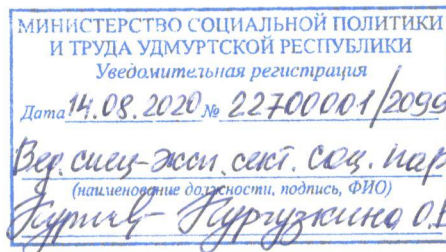 МИНИСТЕРСТВО СОЦИАЛЬНОЙ ПОЛИТИКИ
И ТРУДА УДМУРТСКОЙ РЕСПУБЛИКИ
Уведомительная регистрация
Дата 14.08.2020 № 22700001/2099
Вед. спец-эксп. сект. соц. пар
(наименование должности, подпись, ФИО)
Кургузкина О.В